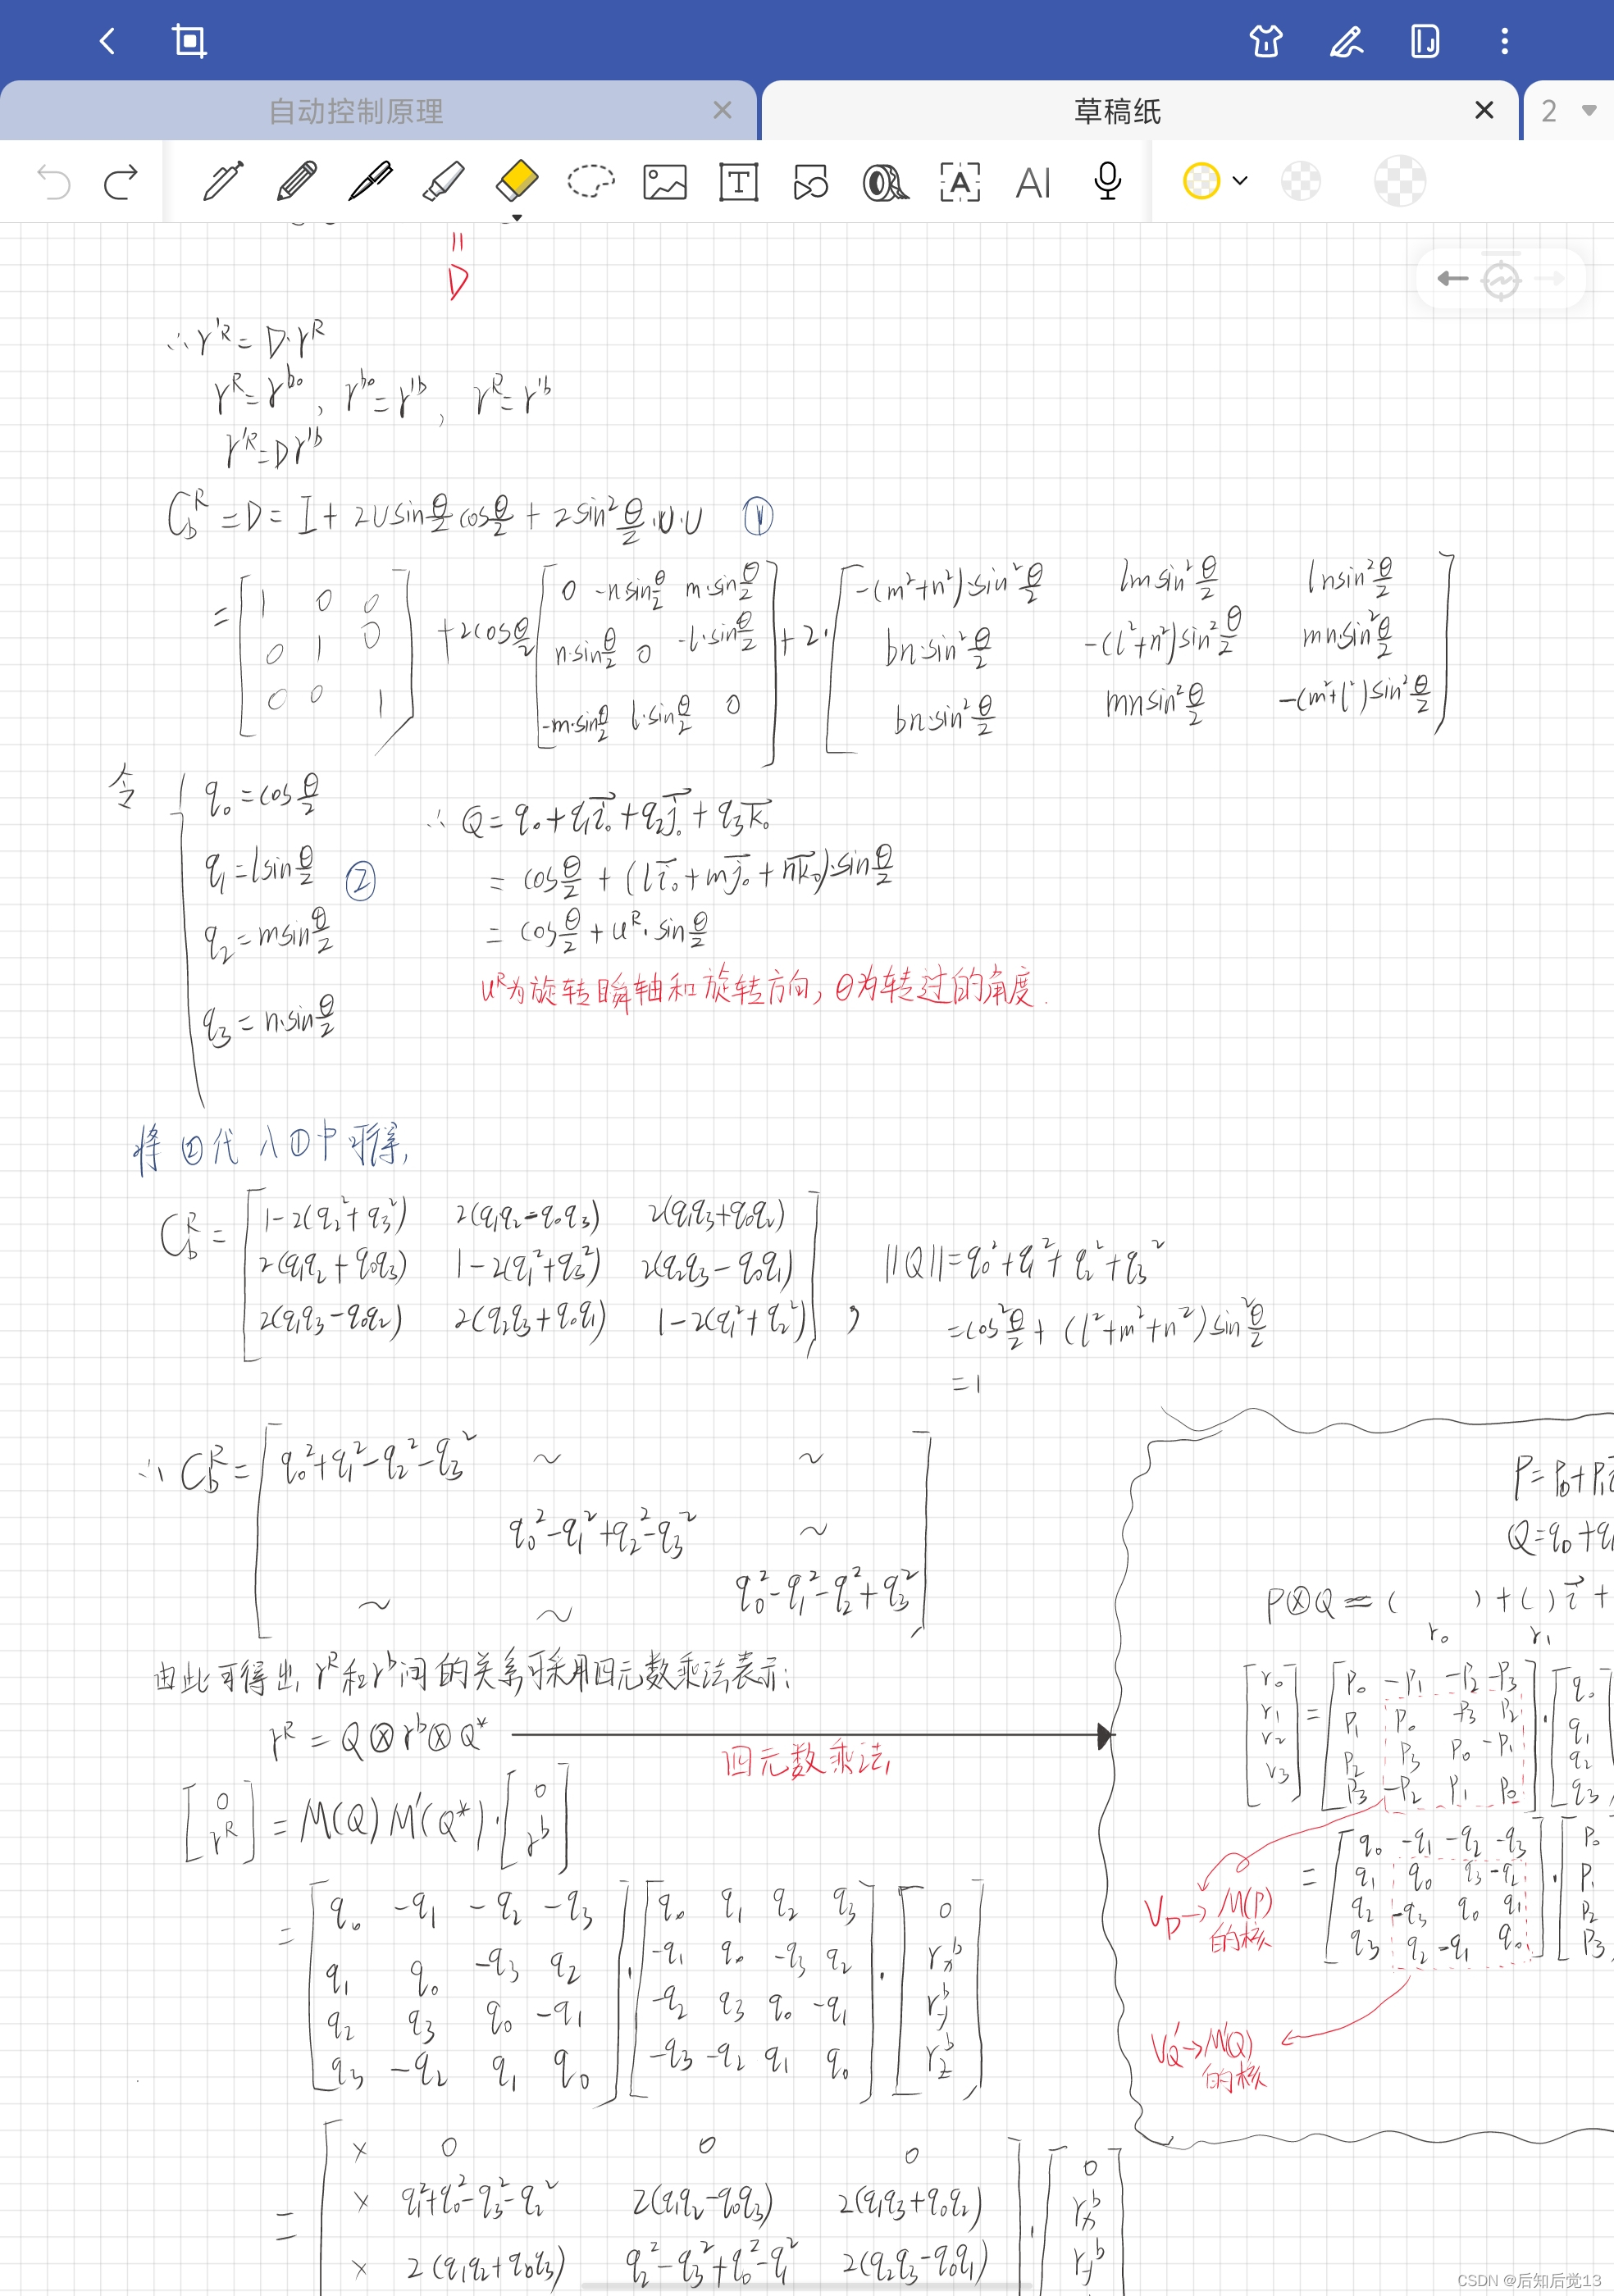 自动控制原理 ×
草稿纸 ×
2
T A AI
=
D
∴ r'^R = D·r^R
r^R = r^{b0}, r^{b0} = r'^b, r^R = r'^b
r'^R = D r'^b
C_b^R = D = I + 2U sin θ/2 cos θ/2 + 2sin² θ/2 ·U·U ①
= [ 1 0 0 ; 0 1 0 ; 0 0 1 ] + 2cos θ/2 [ 0 -n sin θ/2 m·sin θ/2 ; n·sin θ/2 0 -l·sin θ/2 ; -m·sin θ/2 l·sin θ/2 0 ] + 2· [ -(m²+n²)·sin² θ/2 lm sin² θ/2 ln sin² θ/2 ; bn·sin² θ/2 -(l²+n²)sin² θ/2 mn·sin² θ/2 ; bn·sin² θ/2 mn sin² θ/2 -(m²+l²)sin² θ/2 ]
令 { q₀ = cos θ/2
q₁ = l sin θ/2 ②
q₂ = m sin θ/2
q₃ = n·sin θ/2
∴ Q = q₀ + q₁i₀ + q₂j₀ + q₃k₀
= cos θ/2 + (l i₀ + m j₀ + n k₀)·sin θ/2
= cos θ/2 + u^R · sin θ/2
u^R为旋转瞬轴和旋转方向, θ为转过的角度.
将②代入①中可得,
C_b^R = [ 1-2(q₂²+q₃²) 2(q₁q₂-q₀q₃) 2(q₁q₃+q₀q₂) ; 2(q₁q₂+q₀q₃) 1-2(q₁²+q₃²) 2(q₂q₃-q₀q₁) ; 2(q₁q₃-q₀q₂) 2(q₂q₃+q₀q₁) 1-2(q₁²+q₂²) ] ,
||Q|| = q₀²+q₁²+q₂²+q₃²
= cos² θ/2 + (l²+m²+n²)sin² θ/2
= 1
∴ C_b^R = [ q₀²+q₁²-q₂²-q₃² ~ ~ ; q₀²-q₁²+q₂²-q₃² ~ ; ~ ~ q₀²-q₁²-q₂²+q₃² ]
由此可得出, r^R和r^b间的关系可采用四元数乘法表示:
r^R = Q⊗r^b⊗Q*
四元数乘法
[ 0 ; r^R ] = M(Q)M'(Q*)· [ 0 ; r^b ]
= [ q₀ -q₁ -q₂ -q₃ ; q₁ q₀ -q₃ q₂ ; q₂ q₃ q₀ -q₁ ; q₃ -q₂ q₁ q₀ ] · [ q₀ q₁ q₂ q₃ ; -q₁ q₀ -q₃ q₂ ; -q₂ q₃ q₀ -q₁ ; -q₃ -q₂ q₁ q₀ ] · [ 0 ; r_x^b ; r_y^b ; r_z^b ]
= [ × 0 0 0 ; × q₁²+q₀²-q₃²-q₂² 2(q₁q₂-q₀q₃) 2(q₁q₃+q₀q₂) ; × 2(q₁q₂+q₀q₃) q₂²-q₃²+q₀²-q₁² 2(q₂q₃-q₀q₁) · [ 0 ; r_x^b ; r_y^b
P = P₀ + P₁i
Q = q₀ + q₁
P⊗Q = ( ) + ( )i +
r₀ r₁
[ r₀ ; r₁ ; r₂ ; r₃ ] = [ P₀ -P₁ -P₂ -P₃ ; P₁ P₀ -P₃ P₂ ; P₂ P₃ P₀ -P₁ ; P₃ -P₂ P₁ P₀ ] · [ q₀ ; q₁ ; q₂ ; q₃
= [ q₀ -q₁ -q₂ -q₃ ; q₁ q₀ q₃ -q₂ ; q₂ -q₃ q₀ q₁ ; q₃ q₂ -q₁ q₀ ] · [ P₀ ; P₁ ; P₂ ; P₃
V_P → M(P)
的核
V'_Q → M'(Q)
的核
CSDN @后知后觉13